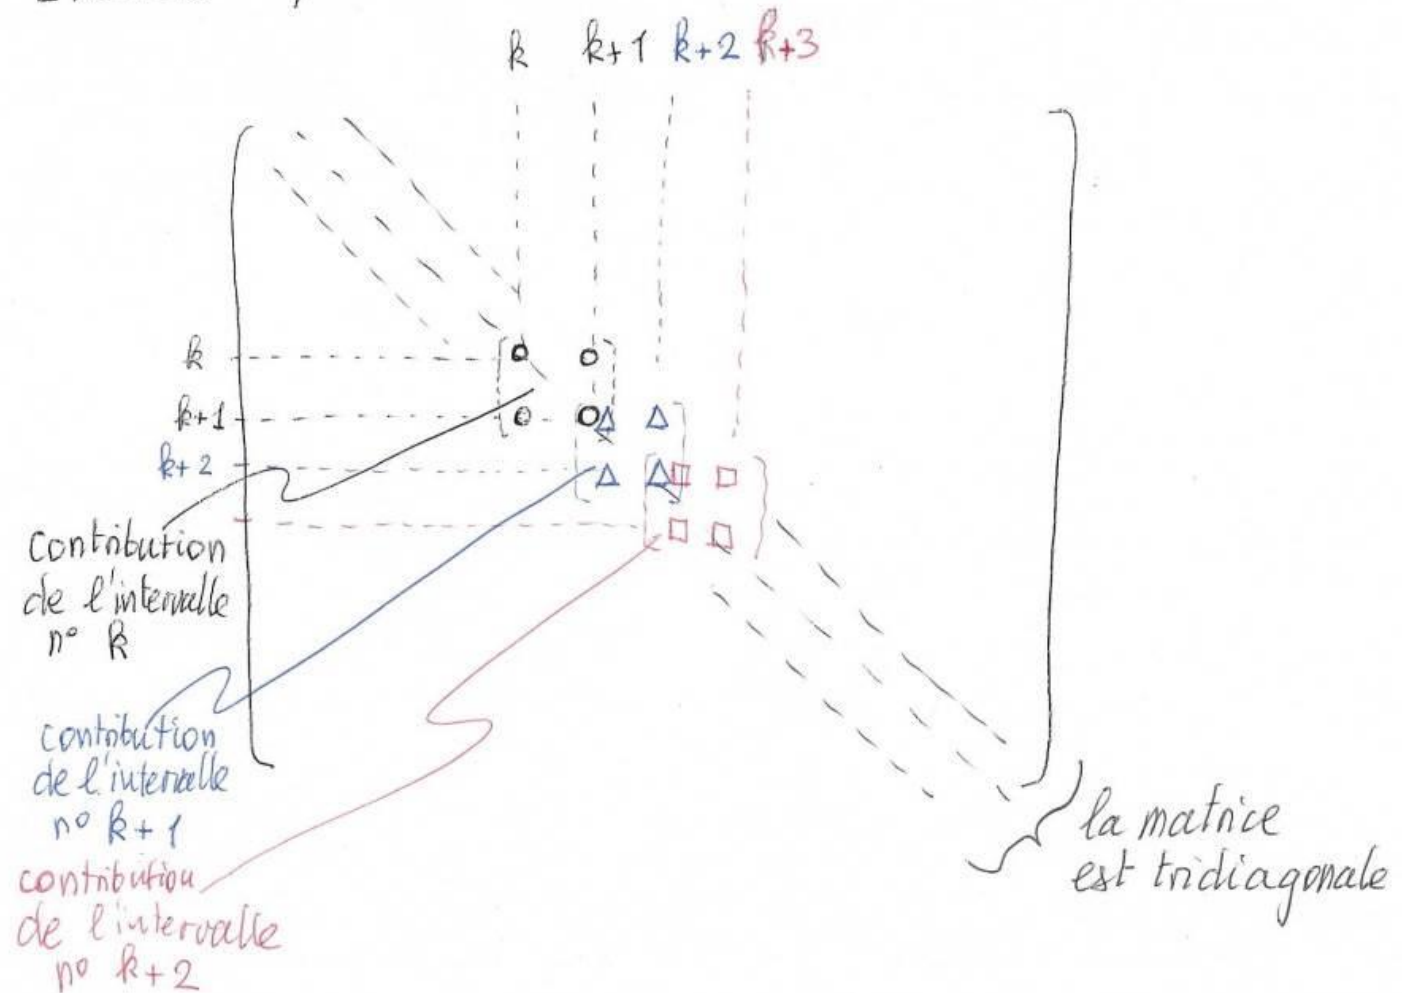 k k+1 k+2 k+3
k
k+1
k+2
contribution
de l'intervalle
n° k
contribution
de l'intervalle
n° k+1
contribution
de l'intervalle
n° k+2
la matrice
est tridiagonale